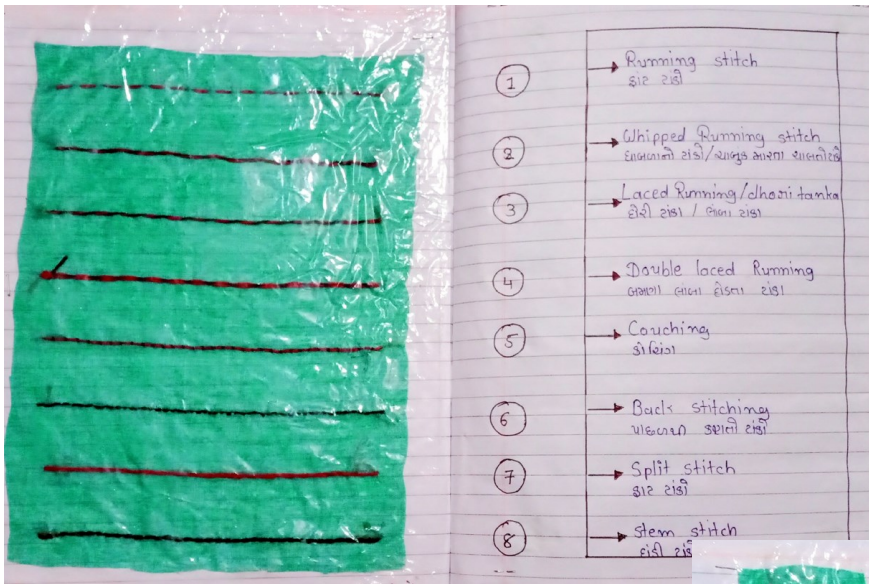 1
Running stitch
ફાંટ ટાંકો
2
Whipped Running stitch
ધાબળાનો ટાંકો/ચાબુક મારતા ચાલતો ટાંકો
3
Laced Running/dhori tanka
દોરી ટાંકા / લાબા ટાંકા
4
Double laced Running
બમણા લાબા દોડતા ટાંકા
5
Couching
કોચિંગ
6
Back stitching
પાછળથી કરાતો ટાંકો
7
Split stitch
ફાટ ટાંકો
8
stem stitch
દાંડી